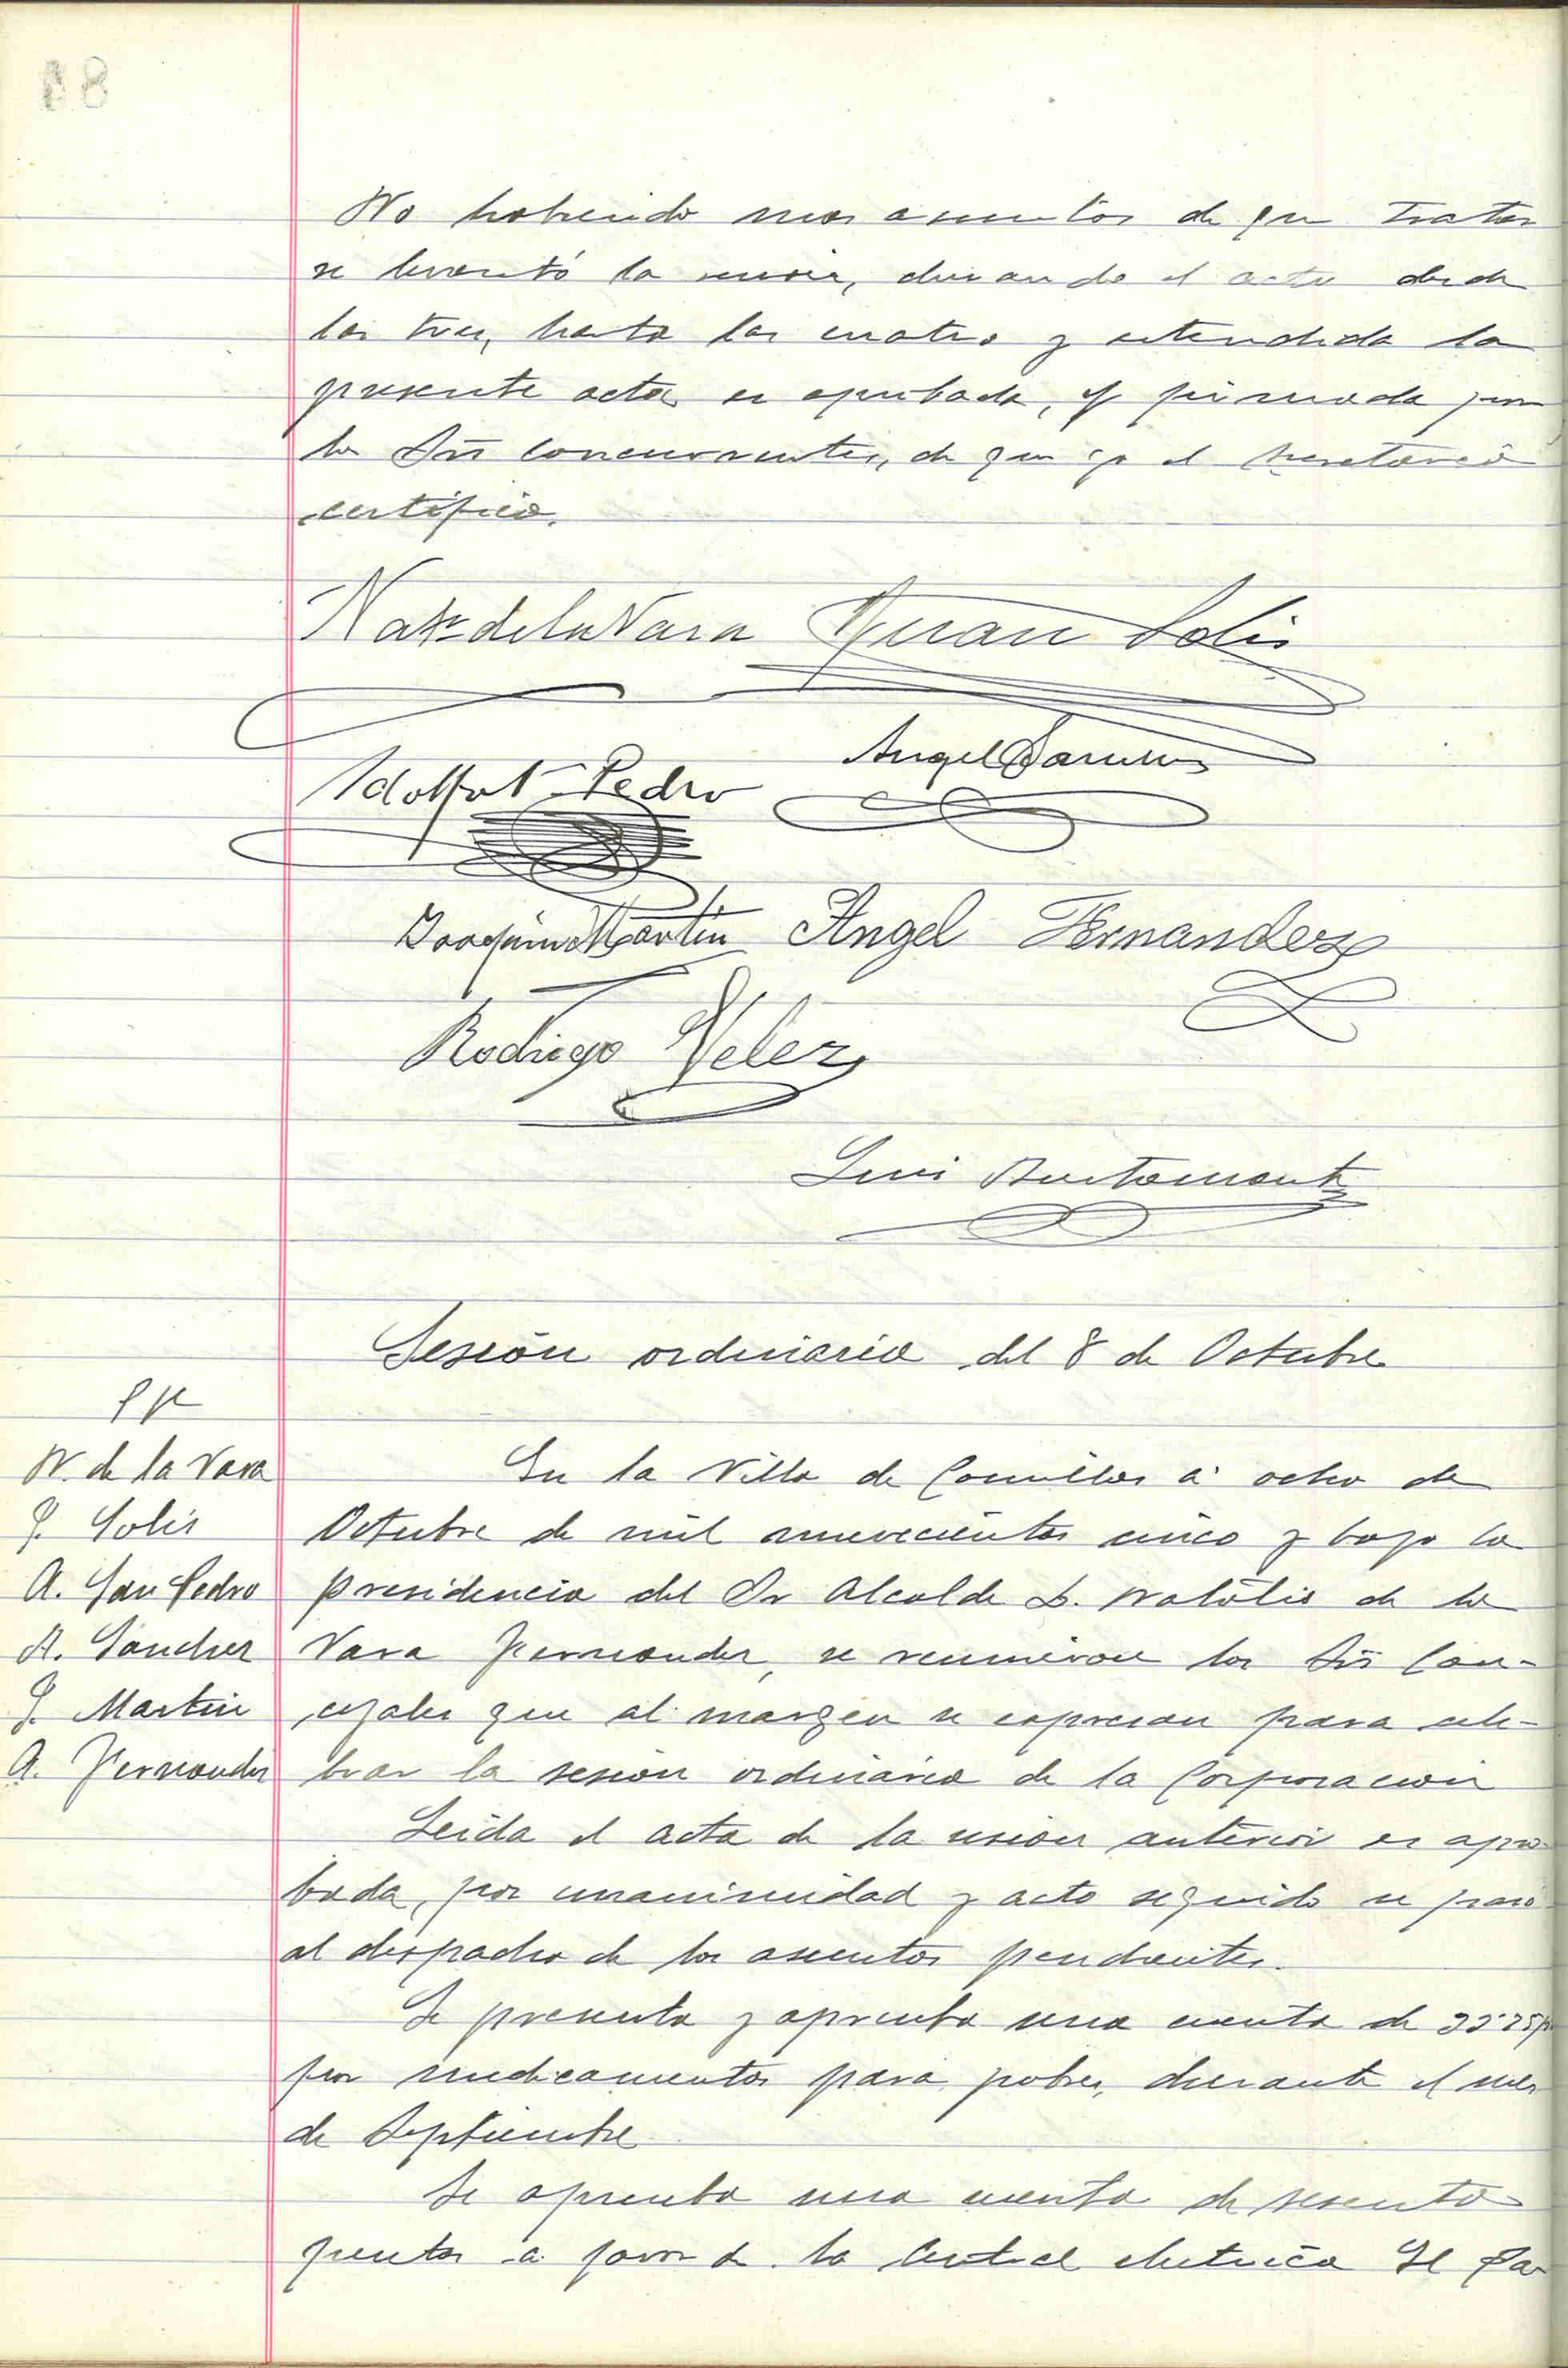 No habiendo mas asuntos de que tratar
se levantó la sesion, durando el acto desde
las tres, hasta las cuatro y extendida la
presente acta es aprobada, y firmada por
los Srs concurrentes, de que yo el Secretario
certifico.
Nat. de la Vara Juan Solis
Angel
Adolfo S. Pedro
Joaquin Martin Angel Fernandez
Rodrigo Velez
Luis Bustamante
Sesión ordinaria del 8 de Octubre
N. de la Vara
J. Solis
A. San Pedro
A. Sanchez
J. Martin
A. Fernandez
En la Villa de Comillas á ocho de
Octubre de mil novecientos cinco y bajo la
presidencia del Sr Alcalde D. Natalio de la
Vara Fernandez, se reunieron los Srs Con-
cejales que al margen se expresan para cele-
brar la sesion ordinaria de la Corporacion
Leida el acta de la sesion anterior es apro-
bada, por unanimidad y acto seguido se paso
al despacho de los asuntos pendientes.
Se presenta y aprueba una cuenta de
por medicamentos para pobres, durante el mes
de Septiembre
Se aprueba una cuenta de sesenta
pesetas a favor de la Central electrica El